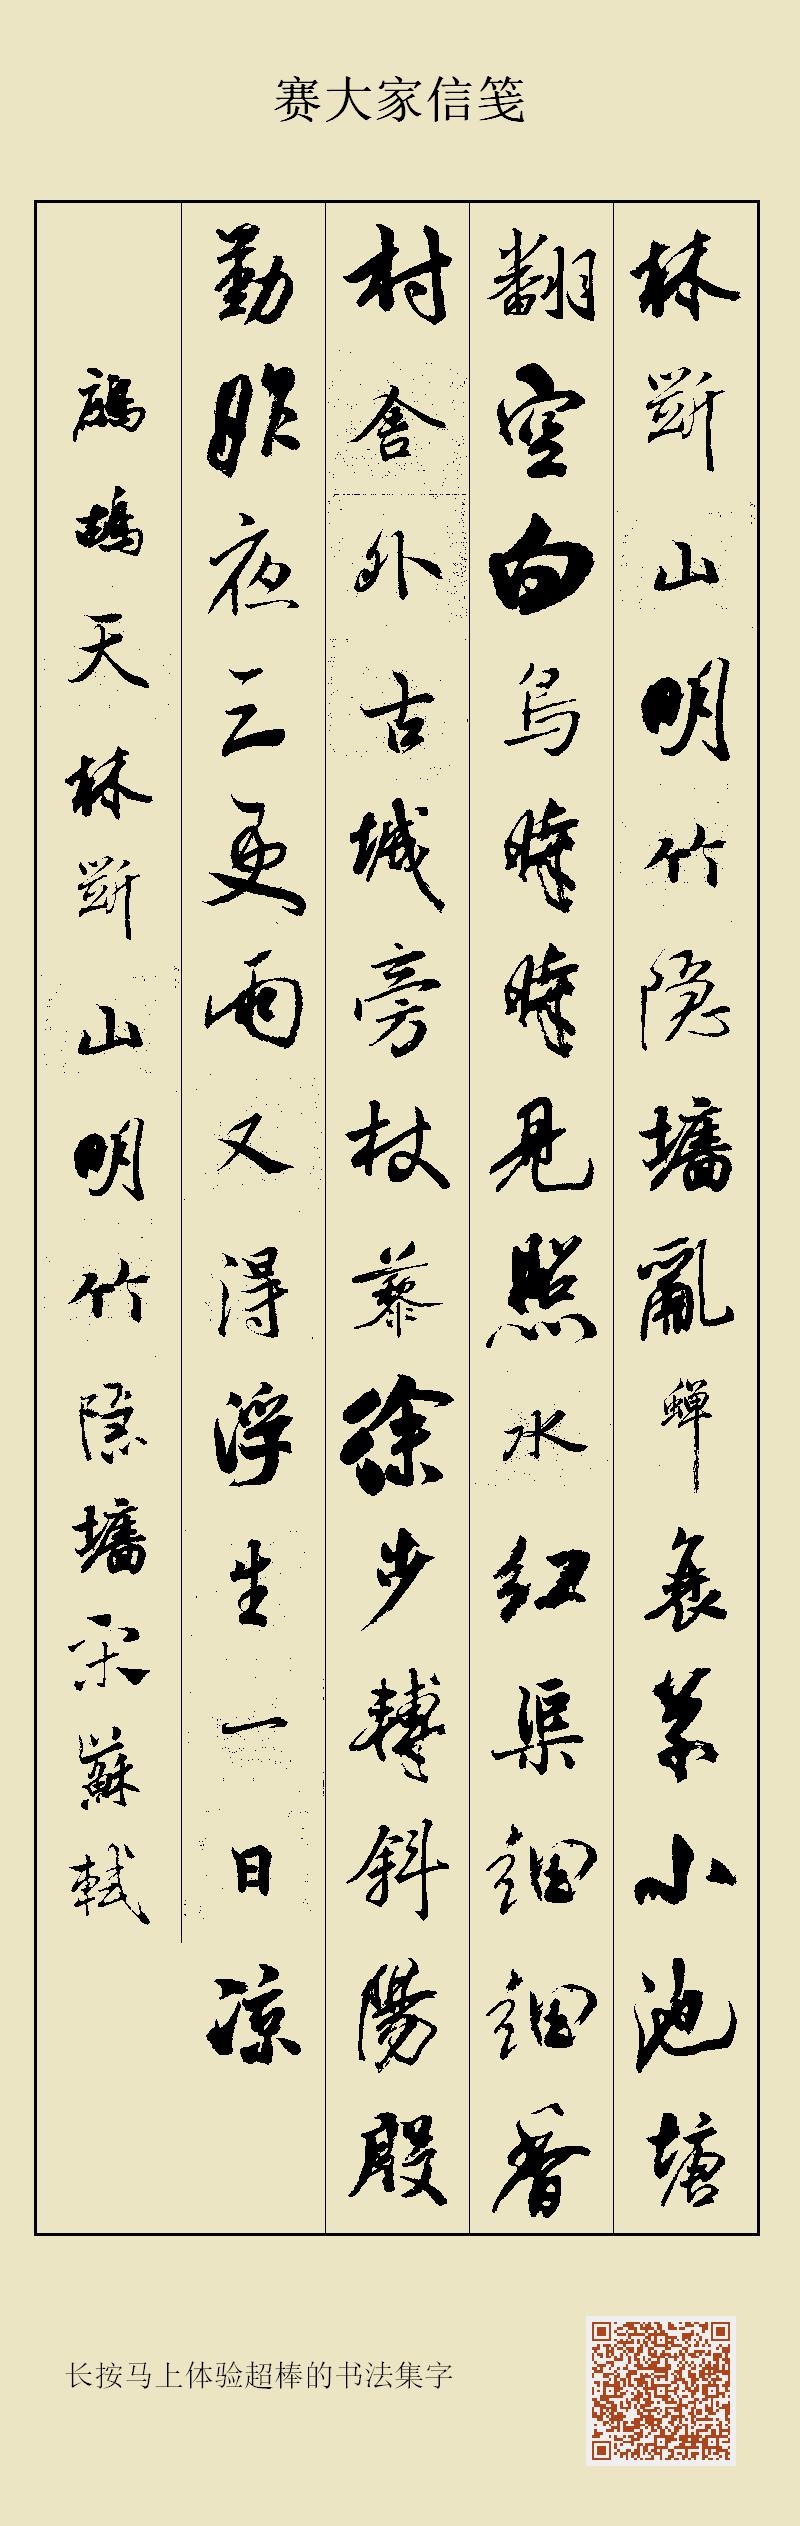 赛大家信笺
林斷山明竹隐墻亂蟬衰草小池塘
翻空白鸟時時見照水红渠細細香
村舍外古城旁杖藜徐步轉斜陽殷
勤昨夜三更雨又得浮生一日凉
鹧鸪天林斷山明竹隐墻宋蘇軾
长按马上体验超棒的书法集字